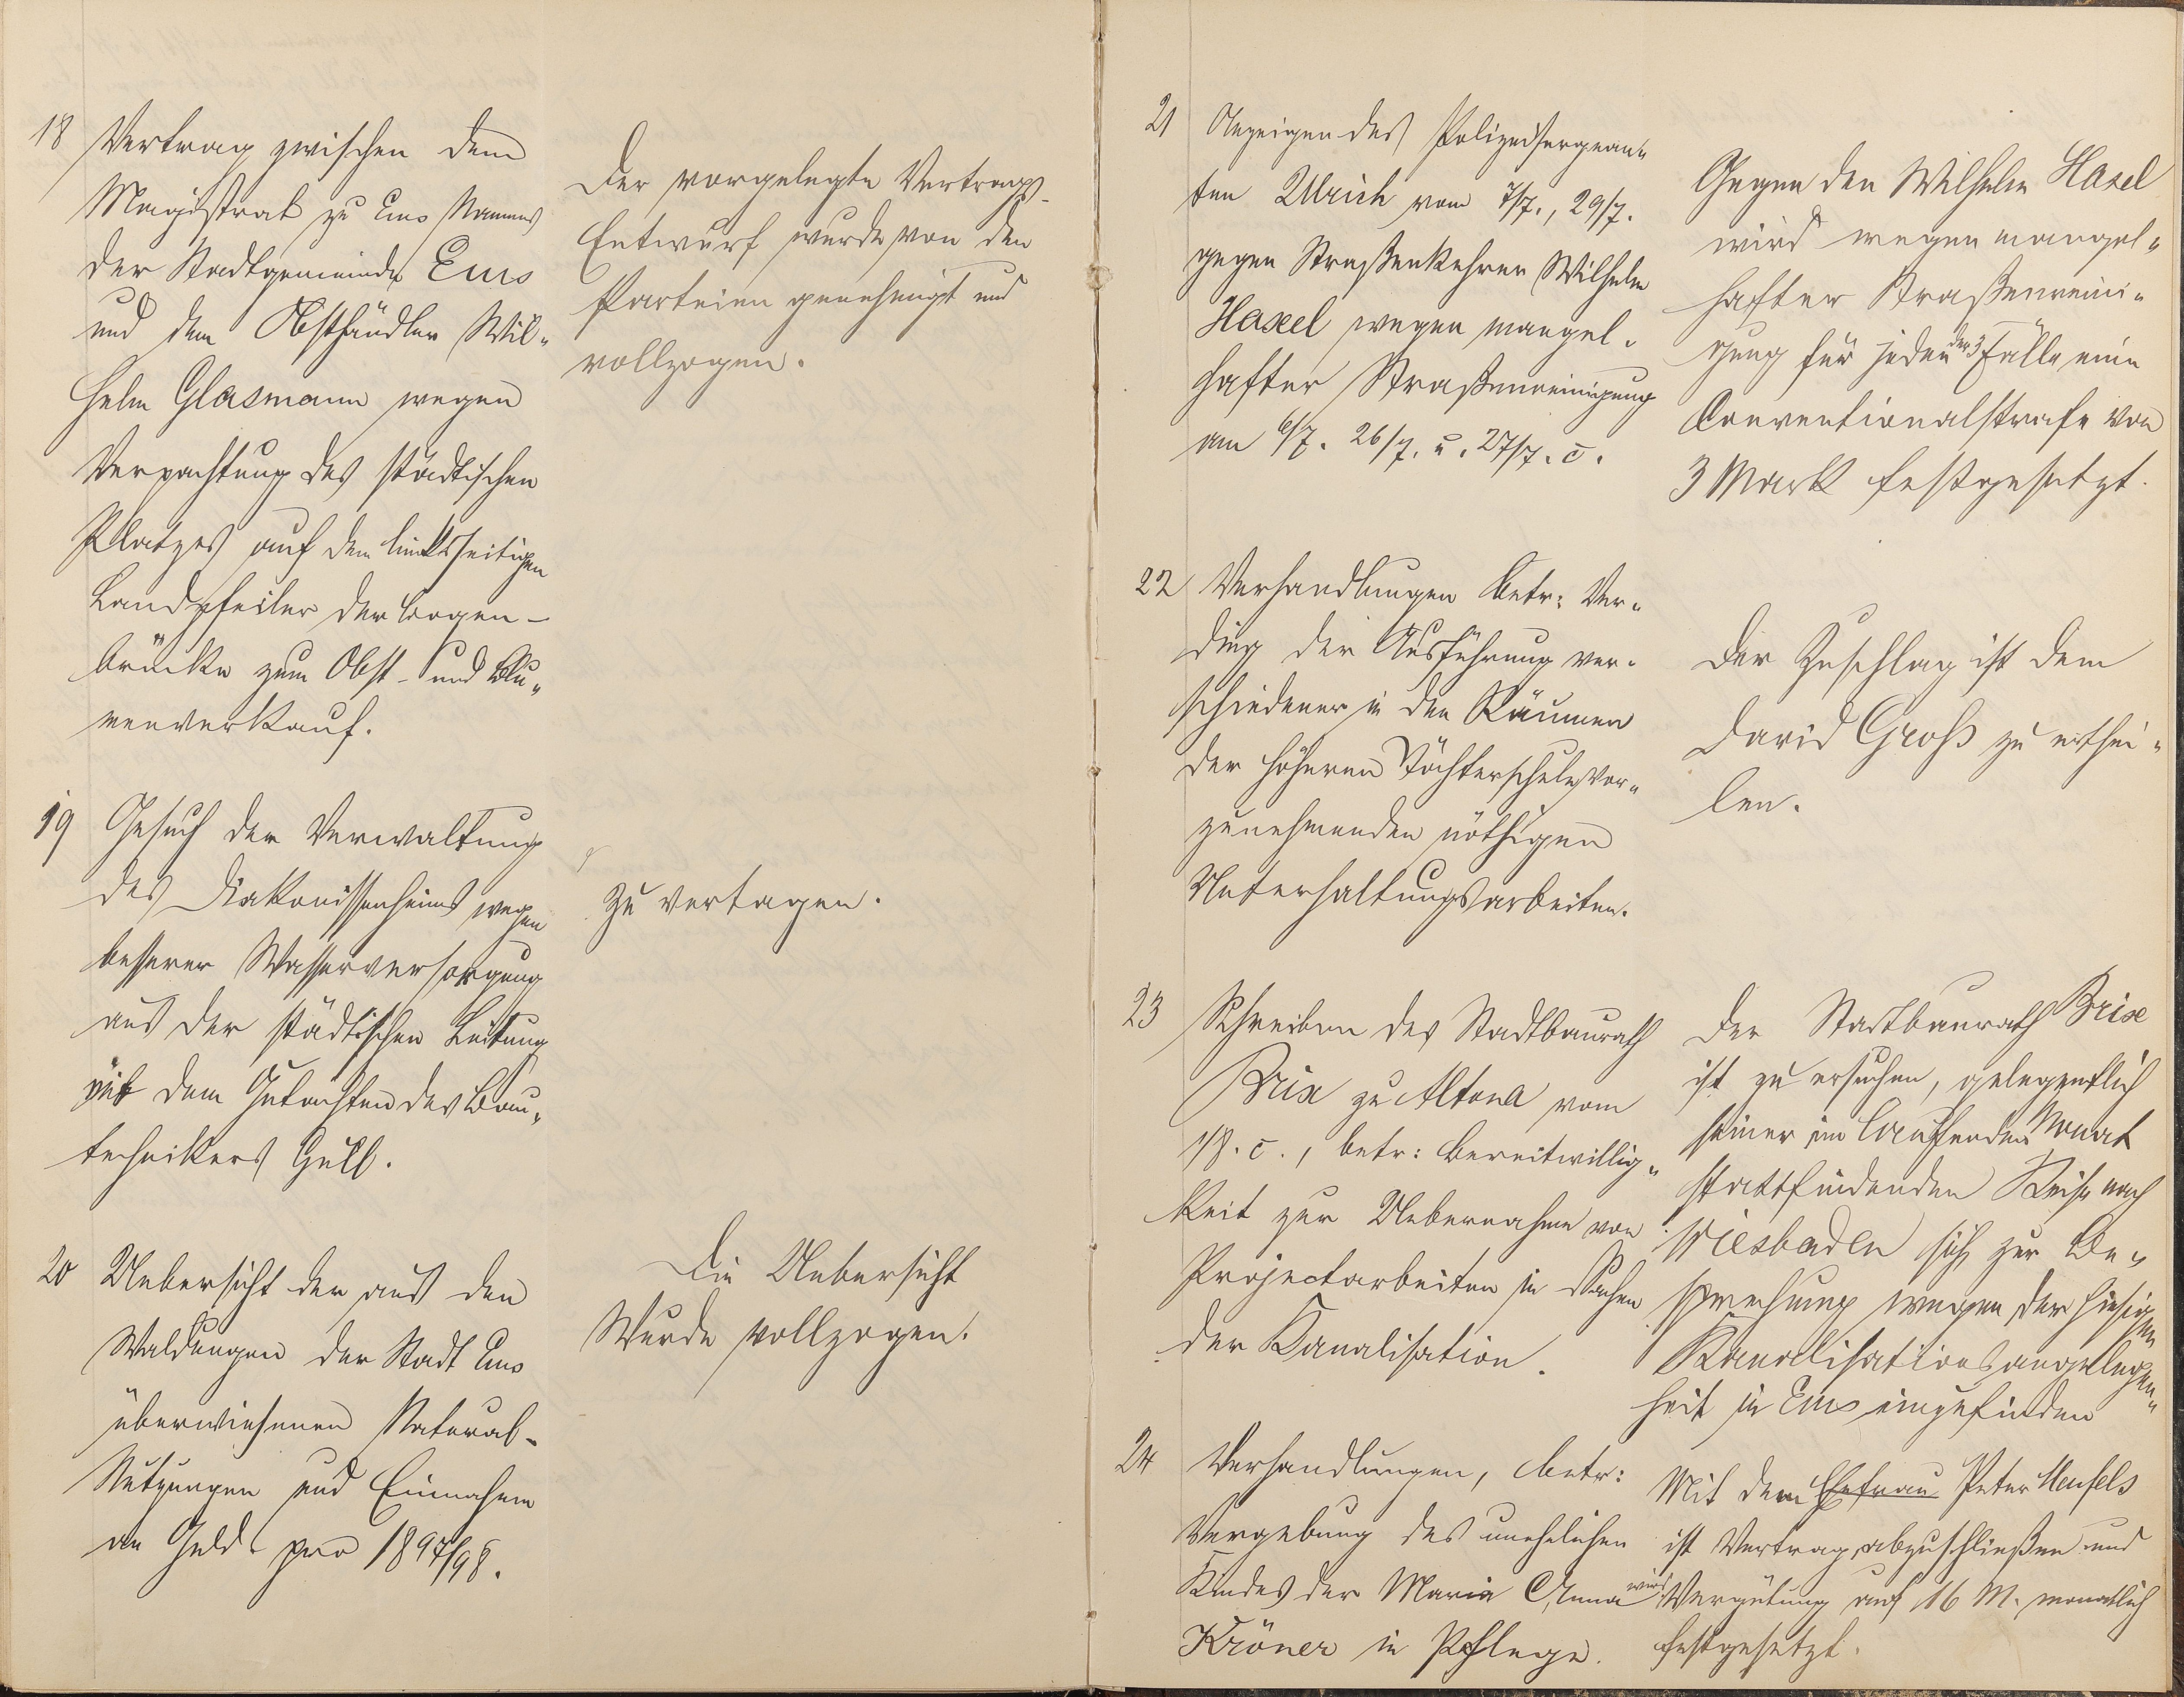 18
Vertrag zwischen dem
Magistrat zu Ems Namens
der Stadtgemeinde Ems
und dem Obsthändler Wil-
helm Glasmann wegen
Verpachtung des städtischen
Platzes auf dem linksseitigen
Landpfeiler der Bogen-
brücke zum Obst- und Blu-
menverkauf.
Der vorgelegte Vertrags-
Entwurf wurde von den
Parteien genehmigt und
vollzogen.
19
Gesuch der Verwaltung
des Diakonissenheims wegen
besserer Wasserversorgung
aus der städtischen Leitung
mit dem Gutachten des Bau-
technikers Gull.
Zu vertagen.
20
Uebersicht der aus den
Waldungen der Stadt Ems
überwiesenen Natural-
Nutzungen und Einnahme
an Geld pro 1897/98.
Die Uebersicht
wurde vollzogen.
21
Anzeigen des Polizeisergean-
ten Ulrich vom 7/7., 29/7.
gegen Straßenkehrer Wilhelm
Hasel wegen mangel-
hafter Straßenreinigung
am 6/7. 26/7. u. 27/7. c.
Gegen den Wilhelm Hasel
wird wegen mangel-
hafter Straßenreini-
gung für jeden der 3 Fälle eine
Conventionalstrafe von
3 Mark festgesetzt.
22
Verhandlungen betr: Ver-
ding der Ausführung ver-
schiedener in den Räumen
der höheren Töchterschule vor-
zunehmenden nöthigen
Unterhaltungsarbeiten.
Der Zuschlag ist dem
David Groß zu erthei-
len.
23
Schreiben des Stadtbaurath
Brix zu Altona vom
1/8. c., betr: Bereitwillig-
keit zur Uebernahme von
Projectarbeiten in Sachen
der Kanalisation.
Der Stadtbaurath Brix
ist zu ersuchen, gelegentlich
seiner im laufenden Monat
stattfindenden Reise nach
Wiesbaden sich zur Be-
sprechung wegen der hiesigen
Kanalisationsangelegen-
heit in Ems einzufinden
24
Verhandlungen, betr:
Vergebung des unehelichen
Kindes der Maria Anna
Kröner in Pflege.
Mit dem Ehefrau Peter Heufels
ist Vertrag abzuschließen und
wird Vergütung auf 16 M. monatlich
festgesetzt.